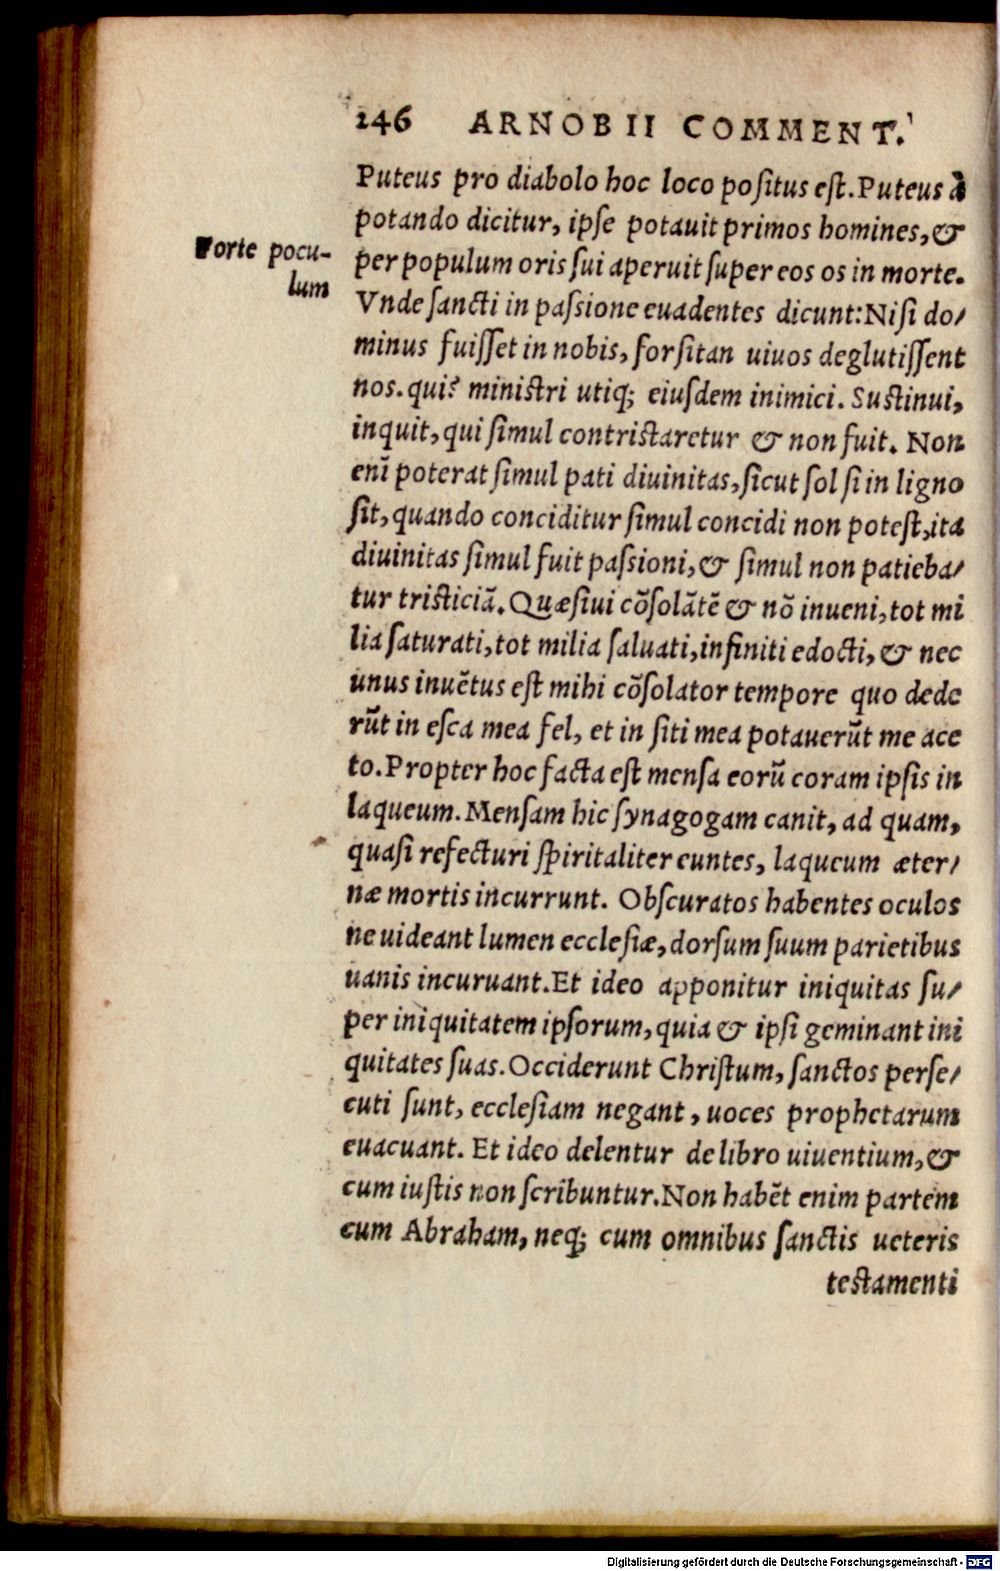 146 ARNOBII COMMENT.
Puteus pro diabolo hoc loco positus est. Puteus à
potando dicitur, ipse potauit primos homines, &
Forte pocu-
lum
per populum oris sui aperuit super eos os in morte.
Vnde sancti in passione euadentes dicunt: Nisi do-
minus fuisset in nobis, forsitan uiuos deglutissent
nos. qui? ministri utiq; eiusdem inimici. Sustinui,
inquit, qui simul contristaretur & non fuit. Non
enī poterat simul pati diuinitas, sicut sol si in ligno
sit, quando conciditur simul concidi non potest, ita
diuinitas simul fuit passioni, & simul non patieba-
tur tristiciā. Quæsiui cōsolātē & nō inueni, tot mi
lia saturati, tot milia saluati, infiniti edocti, & nec
unus inuētus est mihi cōsolator tempore quo dede
rūt in esca mea fel, et in siti mea potauerūt me ace
to. Propter hoc facta est mensa eorū coram ipsis in
laqueum. Mensam hic synagogam canit, ad quam,
quasi refecturi spiritaliter euntes, laqueum æter-
næ mortis incurrunt. Obscuratos habentes oculos
ne uideant lumen ecclesiæ, dorsum suum parietibus
uanis incuruant. Et ideo apponitur iniquitas su-
per iniquitatem ipsorum, quia & ipsi geminant ini
quitates suas. Occiderunt Christum, sanctos perse-
cuti sunt, ecclesiam negant, uoces prophetarum
euacuant. Et ideo delentur de libro uiuentium, &
cum iustis non scribuntur. Non habēt enim partem
cum Abraham, neq; cum omnibus sanctis ueteris
testamenti
Digitalisierung gefördert durch die Deutsche Forschungsgemeinschaft - DFG